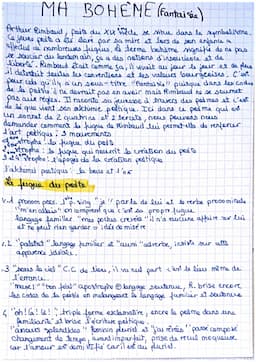 MA BOHEME (Fantaisie)
Arthur Rimbaud, poète du XIX siècle se situe dans le symbolisme.
Ce jeune poète a été par sa mère et son enfance a
effectué de nombreuses fugues, le terme bohème signifie de ne pas
se soucier du lendemain, ça a des notions d'insouciance et de
liberté. Rimbaud était comme ça, il vivait au jour le jour et en plus
il détestait toutes les conventions et les valeurs bourgeoises. C'est
pour cela qu'il y a un sous-titre "Fantaisie" puisque dans les codes
de la poésie il ne devrait pas en avoir mais Rimbaud ne se soumet
pas aux règles. Il raconte sa jeunesse à travers des poèmes et c'est
de là que vient son alchimie poétique. Ici dans ce poème qui est
un sonnet de 2 quatrains et 2 tercets, nous pouvons nous
demander comment la fugue de Rimbaud lui permet-elle de renforcer
l'art poétique; 3 mouvements
strophe: la fugue du poète
strophe: la fugue qui nourrit la création du poète
3 et 4 strophe: l'apogée de la création poétique
l'alchimie poétique: la boue et l'or
la fugue du poète
v.1 pronom pers. 1ère p. sing "je" parle de lui et le verbe pronominale
"m'en allais" on comprend que c'est sa propre fugue
langage familier "mes poches crevées" il n'a aucune affaire sur lui
et ne peut rien garder → idée de misère
v.2 "paletot" langage familier et "aussi" adverbe, insiste sur cette
apparence idéale.
v.3 "sous le ciel" C.C de lieu, il va nul part c'est le lieu même de
l'errance.
"muse!" "ton féal" apostrophe langage soutenue, R. brise encore
les codes de la poésie en mélangeant le langage familier et soutenue
v.4 "oh! là! là!", triple forme exclamative, encre le poème dans une
familiarité et brise l'écriture poétique.
"amours splendides" féminin pluriel et "j'ai rêvées" passé composé
changement de temps, avant imparfait, prise de recul moqueuse
car l'amour est démystifié car il est au pluriel.